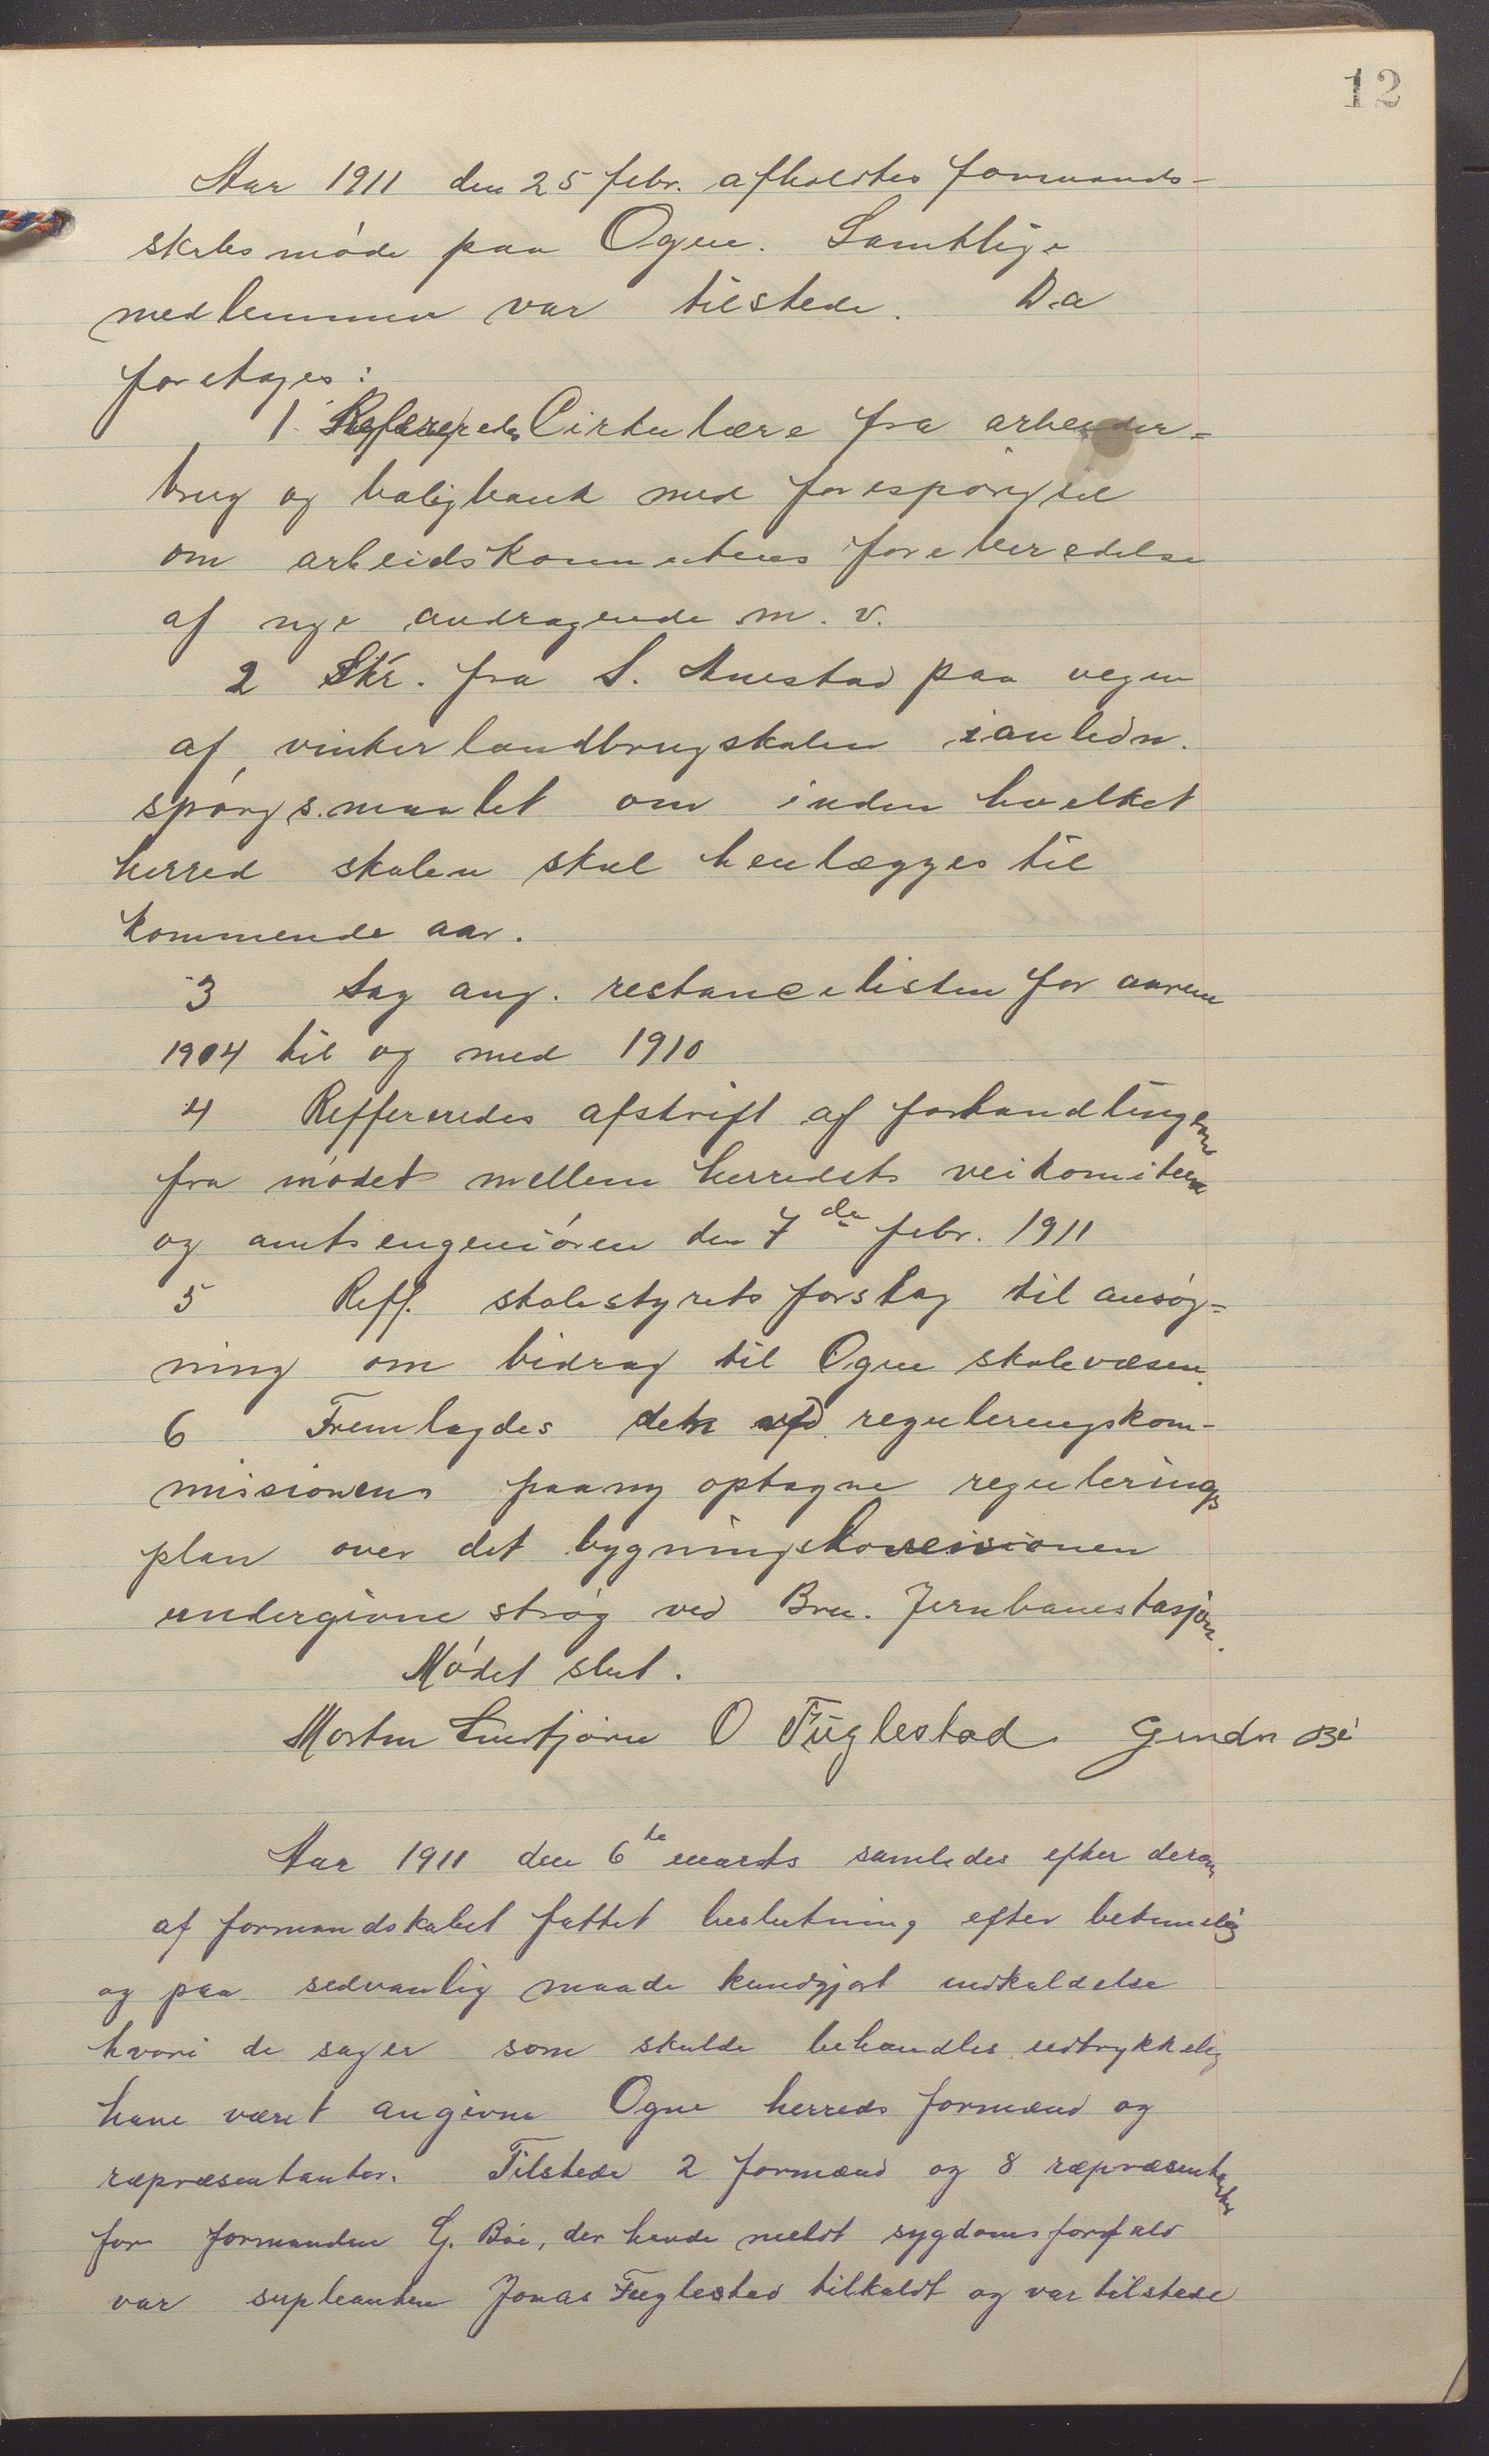 12
Aar 1911 den 25 febr. afholdtes formands-
skabsmöde paa Ogne. Samtlige
medlemmer var tilstede. Da
foretages:
1. Refereredes Cirkulære fra arbeider=
brug og boligbank med forespörgsel
om arbeidskomiteens foreberedelse
af nye andragende m. v.
2 Skr. fra S. Anestad paa vegne
af vinterlandbrugskolen i anledn.
spörgsmaalet om inden hvelket
herred skolen skal henlægges til
kommende aar.
3 Sag ang. restancelisten for aarene
1904 til og med 1910
4 Reffereredes afskrift af forhandlingene
fra mödet mellem herredets veikomiteen
og amtsengeniören den 7de febr. 1911
5 Reff. skolestyrets forslag til ansög=
ning om bidrag til Ogne skolevæsen.
6 Fremlagdes den af reguleringskom-
misionens paany optagne regulerings
plan over det bygningskommisionen
undergivne strög ved Bru. Jernbanestasjon.
Mödet slut.
Morten O Fuglestad
Aar 1911 den 6te marts samledes efter derom
af formandskabet fattet beslutning efter betimelig
og paa sedvanlig maade kundgjort indkaldelse
hvori de sager som skulde behandles udtrykkelig
have været angivne Ogne herreds formænd og
repræsentanter. Tilstede 2 formænd og 8 repræsentanter
for formanden G. Böe, der havde meldt sygdomsforfald
var supleanten Jonas Fuglestad tilkaldt og var tilstede